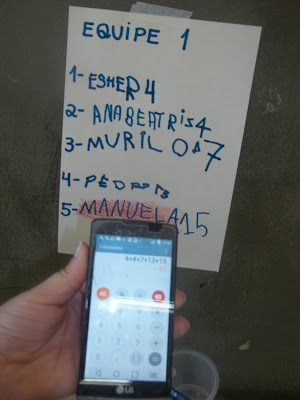 EQUIPE 1
1- ESHER 4
2- ANABEATRIS 4
3- MURILO 7
4- PEDRO 13
5- MANUELA 15
4+4+7+13+15
LG